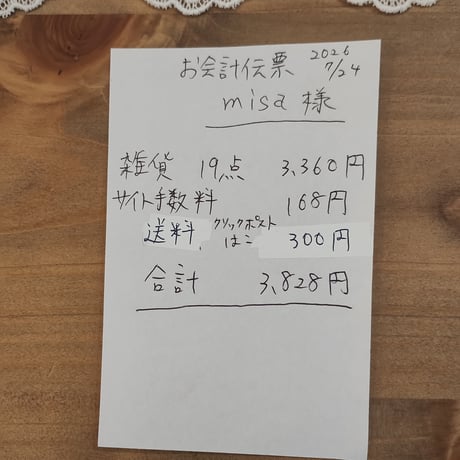 お会計伝票 2026 7/24
misa 様
雑貨 19点 3,360円
サイト手数料 168円
送料、クリックポスト はこ 300円
合計 3,828円